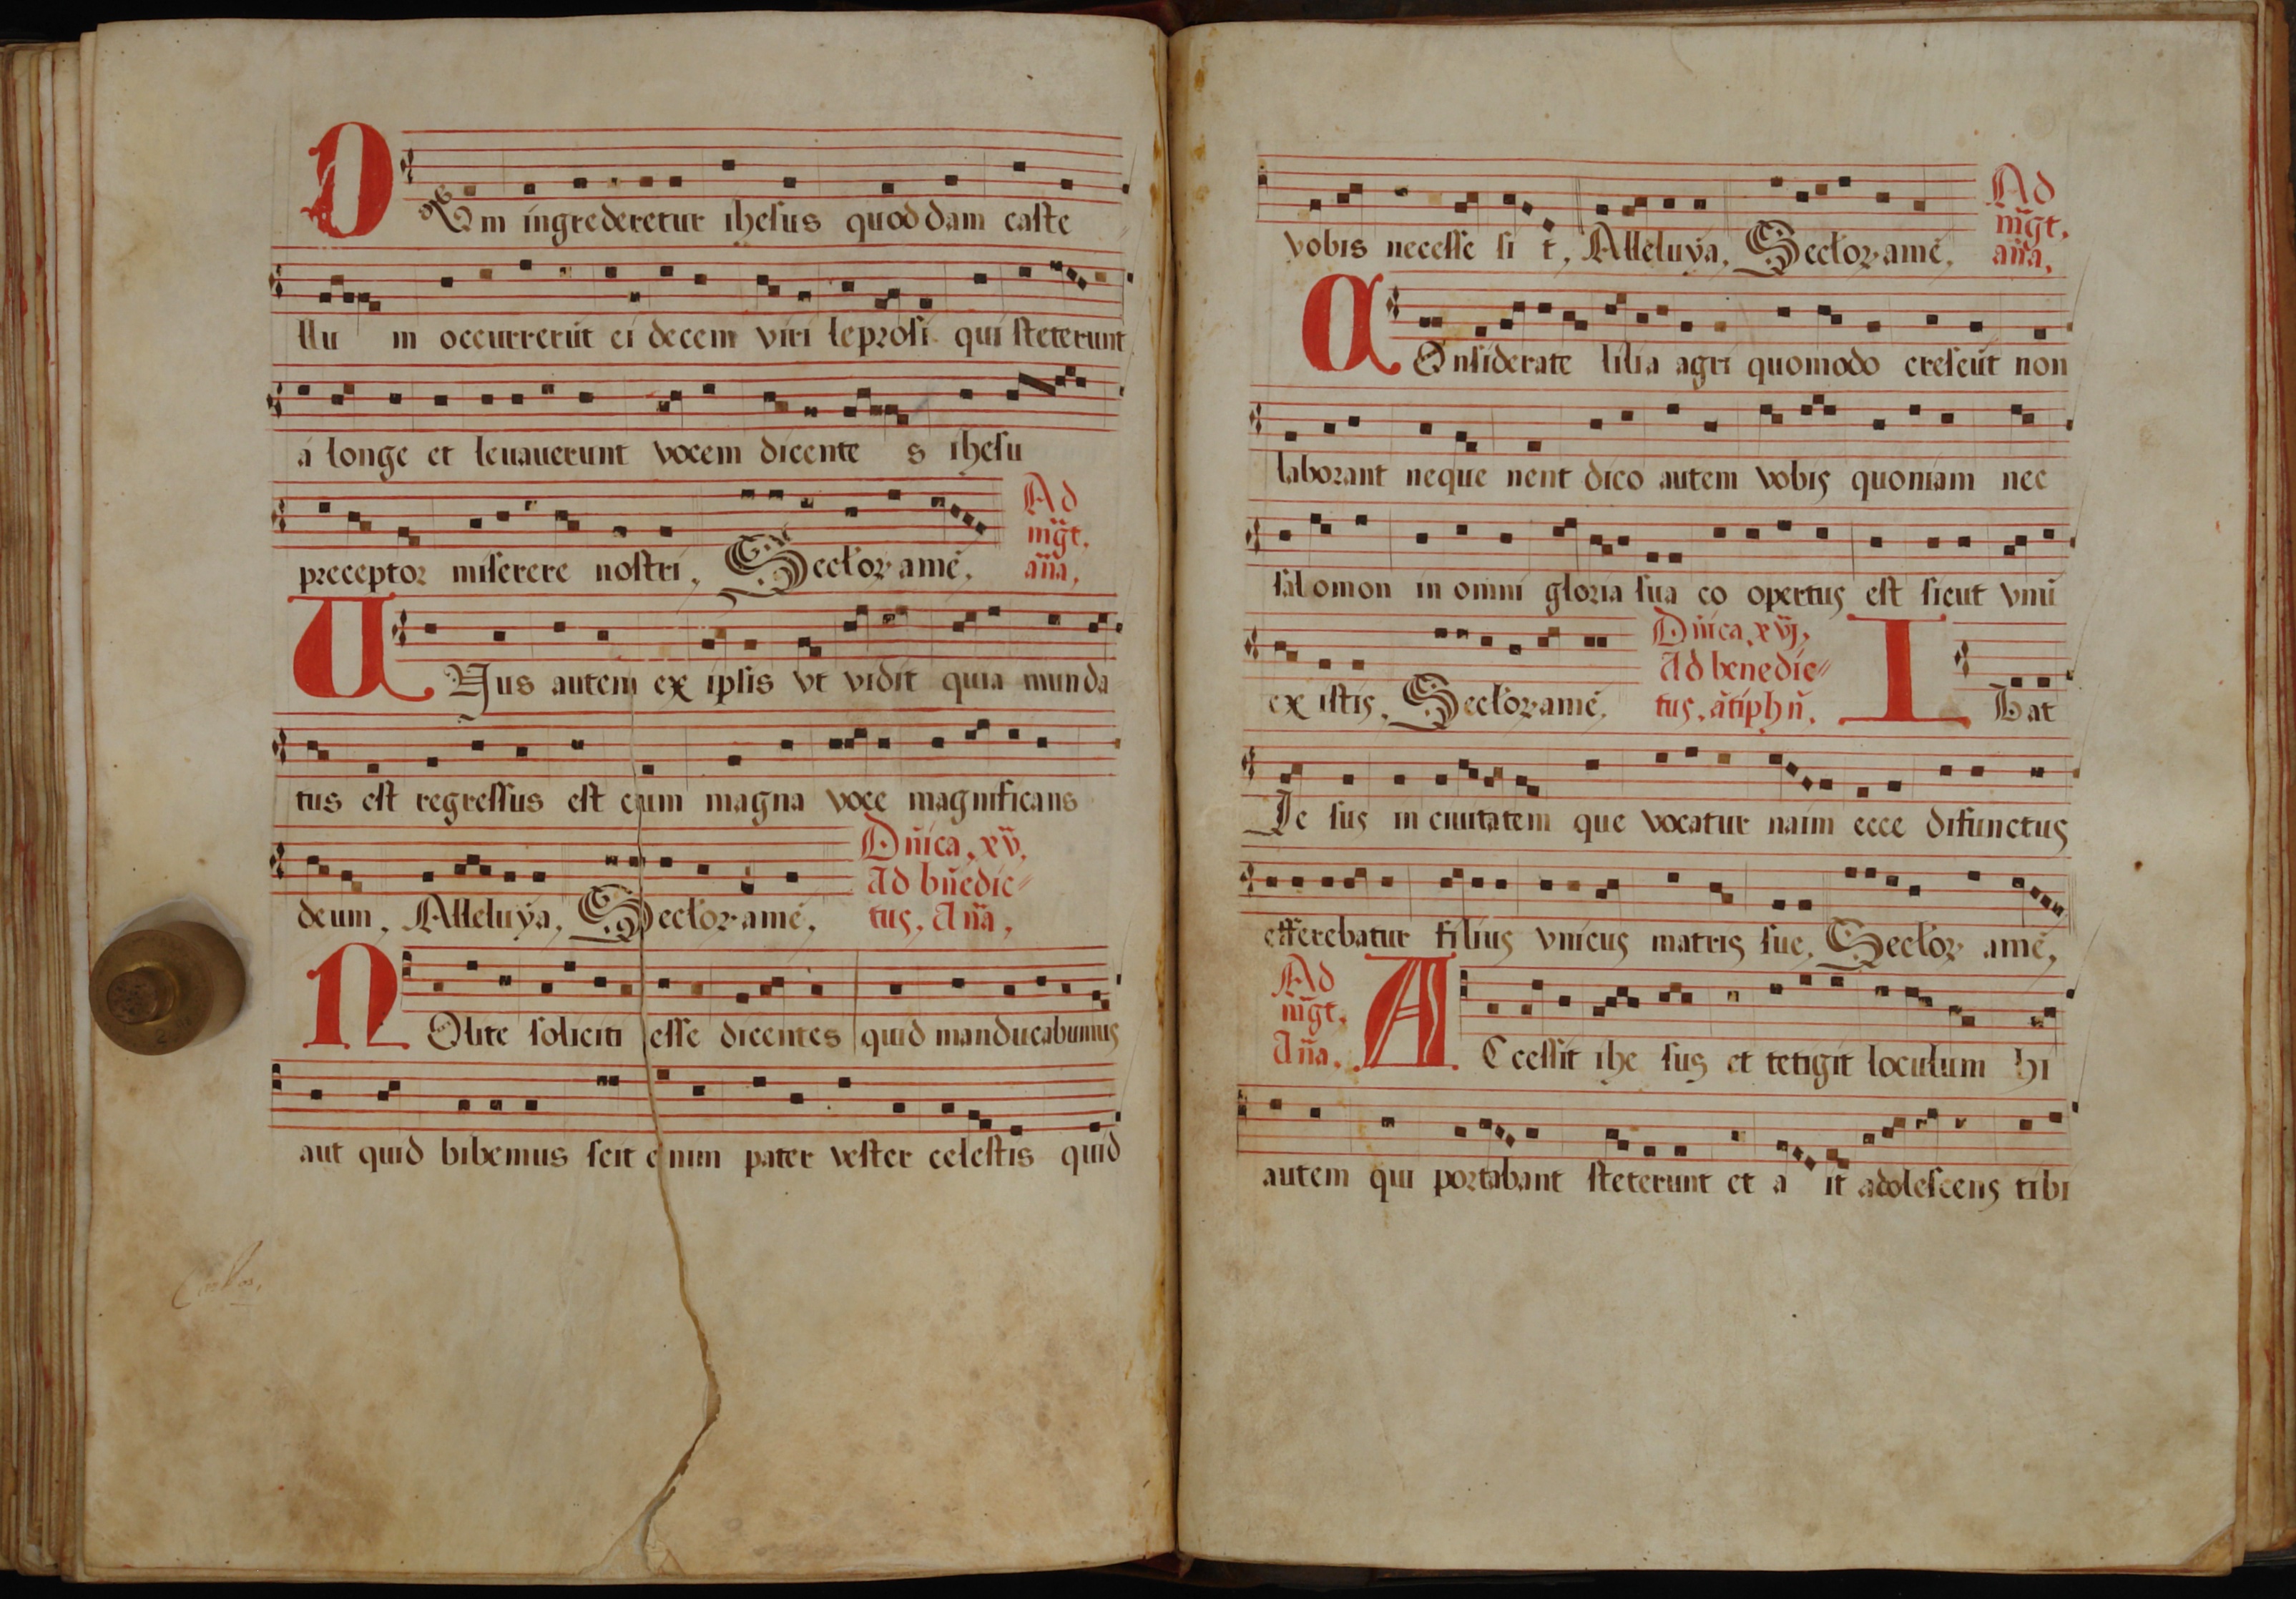 DVm ingrederetur ihesus quoddam caste
llu m occurrerūt ei decem viri leprosi qui steterunt
a longe et leuauerunt vocem dicente s ihesu
preceptor miserere nostri, Seclor amē, Ad
mg̃t.
añа,
UNus autem ex ipsis vt vidit quia munda
tus est regressus est cum magna voce magnificans
deum, Alleluya, Seclor amē, Dñica, xv,
Ad bñedic=
tus, Aña,
NOlite soliciti esse dicentes quid manducabimus
aut quid bibemus scit enim pater vester celestis quid
vobis necesse si t, Alleluya, Seclor amē, Ad
mg̃t,
aña,
COnsiderate lilia agri quomodo crescūt non
laborant neque nent dico autem vobis quoniam nec
salomon in omni gloria sua co opertus est sicut vnū
ex istis, Seclor amē, Dñica, xvj,
Ad benedic=
tus, ātiphñ,
IBat
Je sus in ciuitatem que vocatur naim ecce difunctus
efferebatur filius vnicus matris sue, Seclor amē,
Ad
mg̃t,
Aña,
ACcessit ihe sus et tetigit loculum hi
autem qui portabant steterunt et a it adolescens tibi